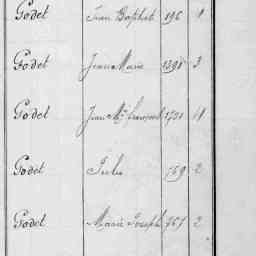 Godet Jean Baptist 196 1
Godet Jean Marie 1398 3
Godet Jean Mie 1721 4
Godet Jules 769 2
Godet Marie Joseph 767 2